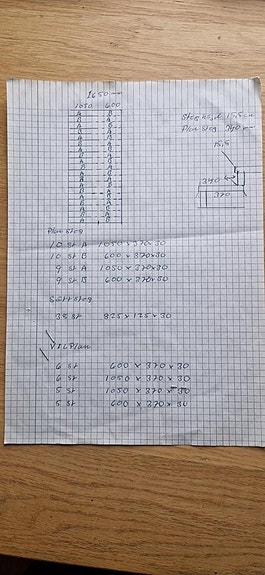 1650
1050 600
A B
A B
A B
A B
A B
A B
A B
A B
A B
A B
A B
A B
A B
A B
A B
A B
A B
A B
A B
15,5 cm
Plan steg 340 mm
15,5
340
370
Plan steg
10 st A 1050x370x30
10 st B 600x370x30
9 st A 1050x370x30
9 st B 600x370x30
Sätt steg
38 st 825 x 125 x 30
VILPlan
6 st 600 x 370 x 30
6 st 1050 x 370 x 30
5 st 1050 x 370 x 30
5 st 600 x 370 x 30